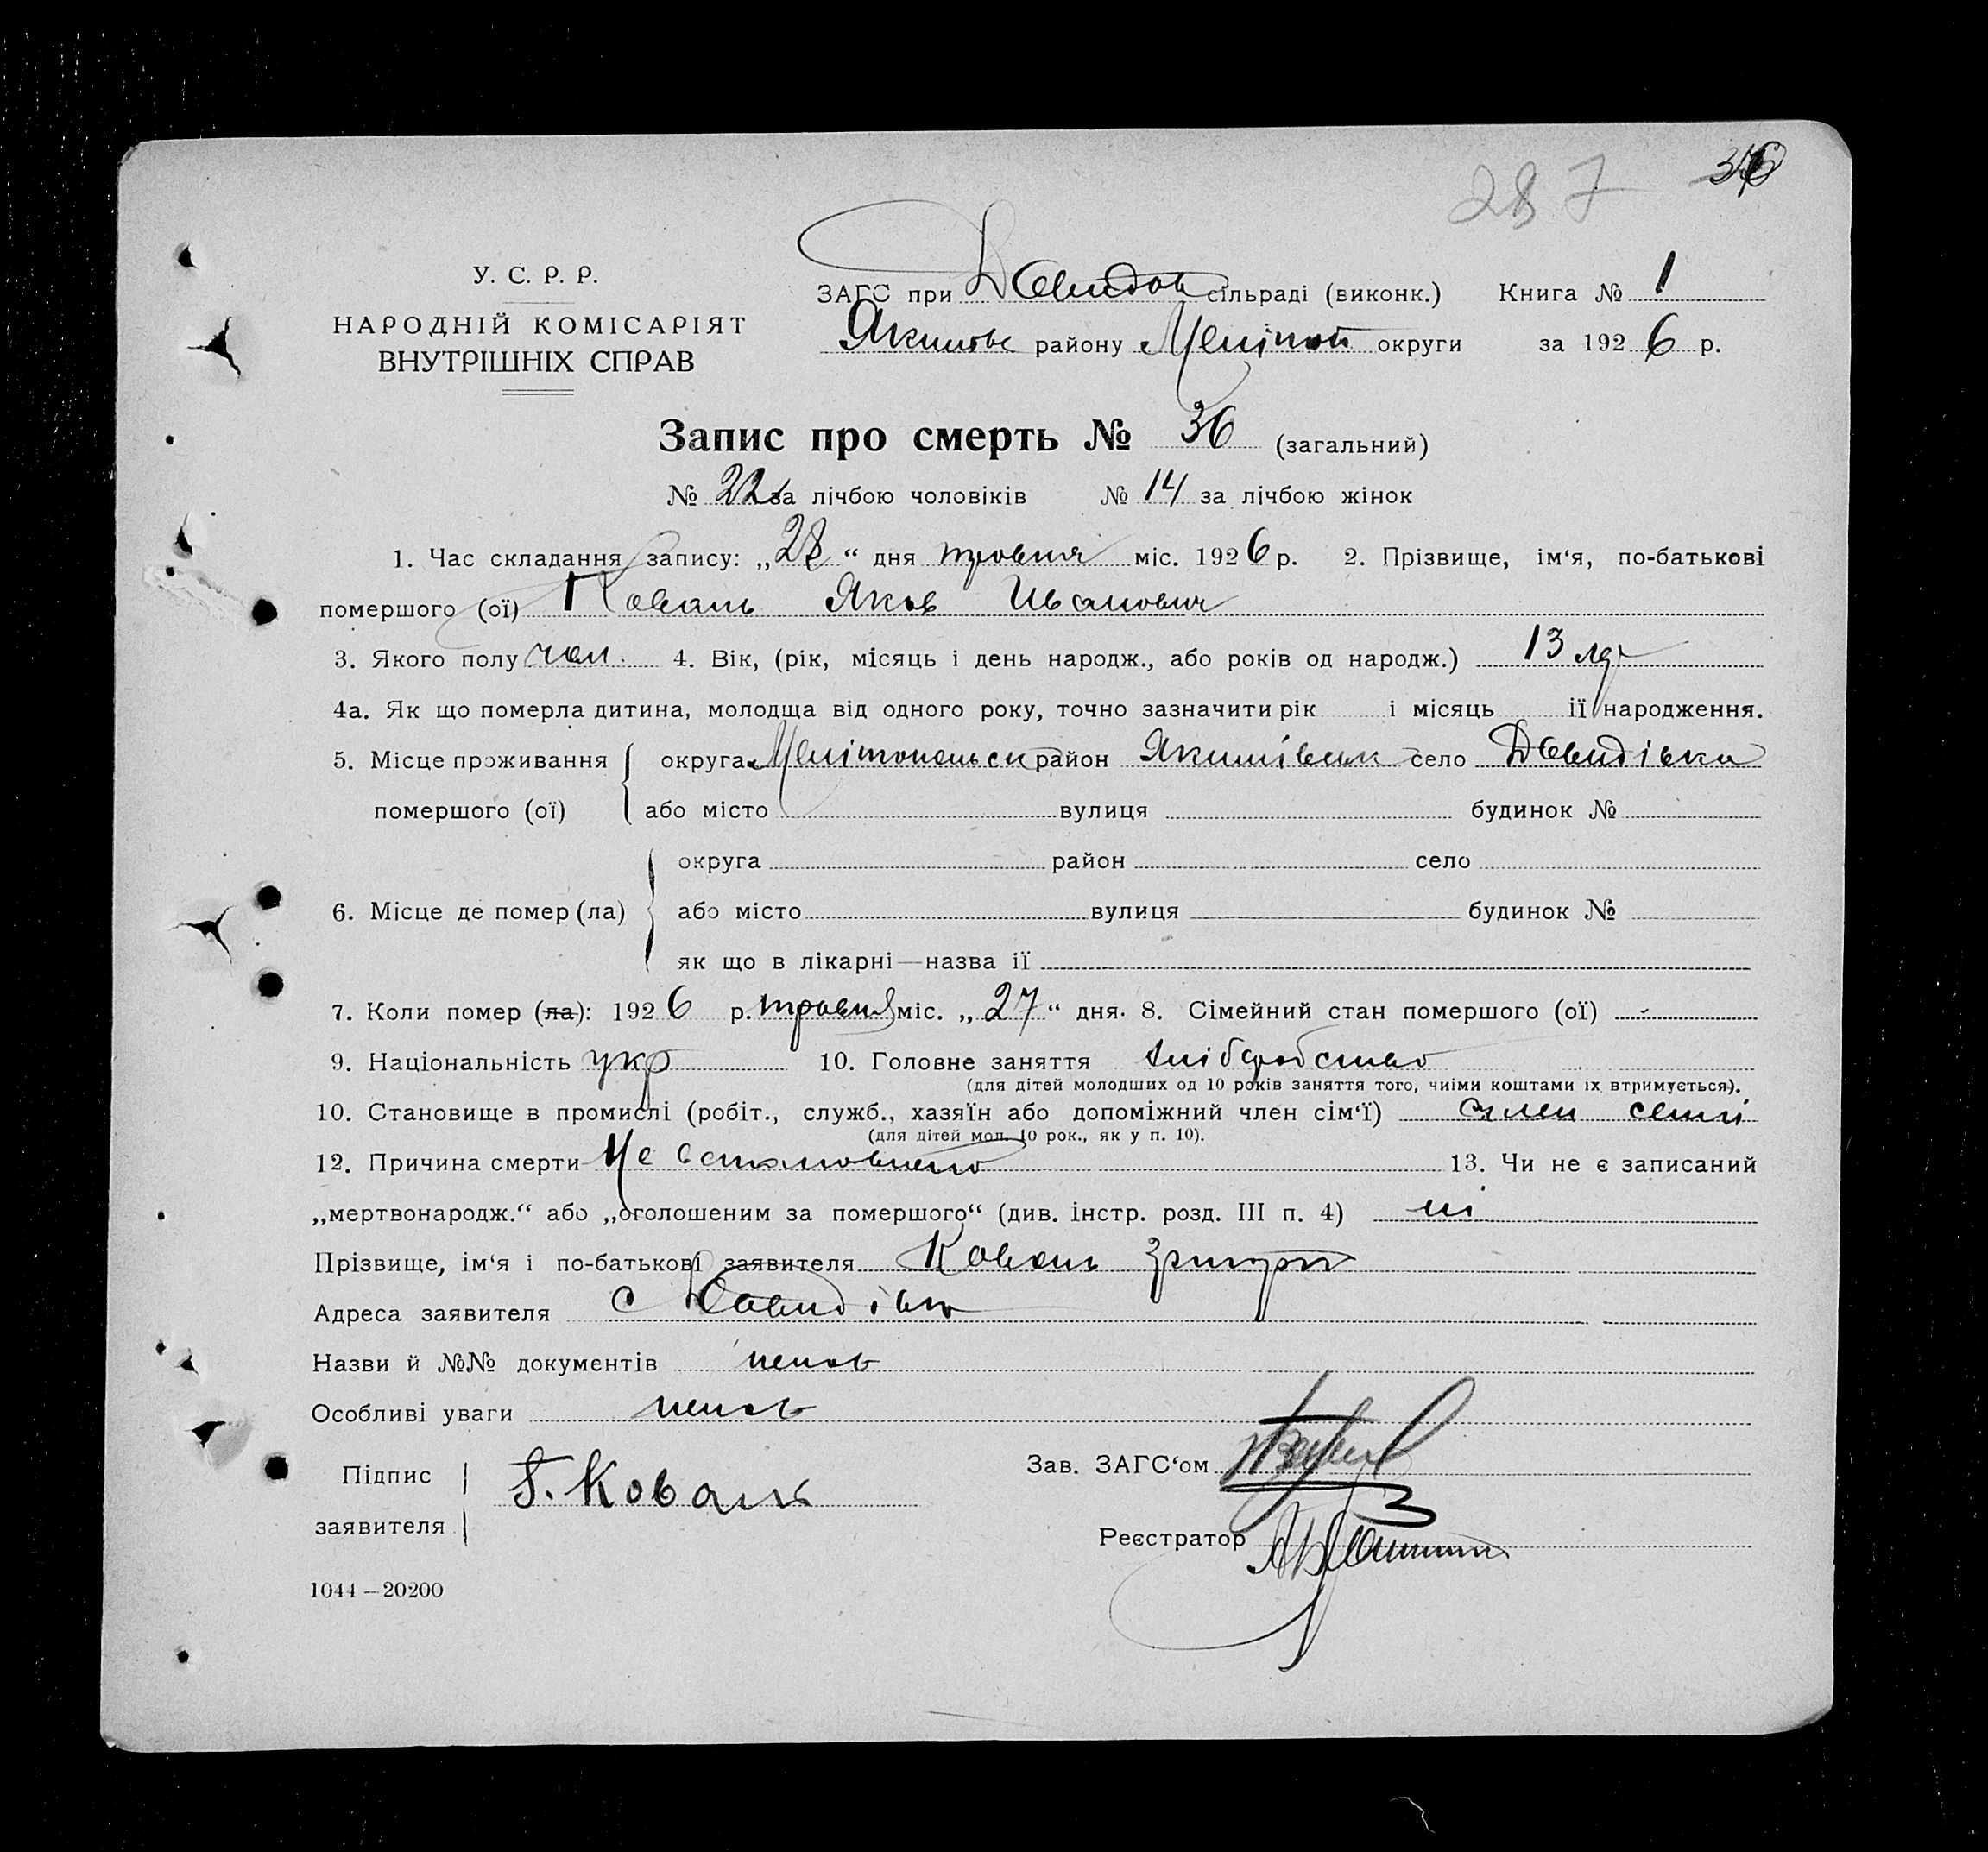 287 36
У. С. Р. Р.
НАРОДНІЙ КОМІСАРІЯТ
ВНУТРІШНІХ СПРАВ
ЗАГС при Давидов сільраді (виконк.) Книга № 1
Якимовс району Меліпол округи за 1926 р.
Запис про смерть № 36 (загальний)
№ 22 за лічбою чоловіків № 14 за лічбою жінок
1. Час складання запису: „28“ дня травня міс. 1926 р. 2. Прізвище, ім‘я, по-батькові
помершого (ої) Коваль Яков Іванович
3. Якого полу чол. 4. Вік, (рік, місяць і день народж., або років од народж.) 13
4а. Як що померла дитина, молодща від одного року, точно зазначити рік і місяць її народження.
5. Місце проживання округа Мелітопольськ район Якимівськ село Давидівка
помершого (ої) або місто вулиця будинок №
округа район село
6. Місце де помер (ла) або місто вулиця будинок №
як що в лікарні—назва її
7. Коли помер (ла): 1926 р. травня міс. „27“ дня. 8. Сімейний стан помершого (ої) -
9. Національність укр 10. Головне заняття хліборобство
(для дітей молодших од 10 років заняття того, чиїми коштами їх втримується).
10. Становище в промислі (робіт., служб., хазяїн або допоміжний член сім‘ї) член семї
(для дітей мол. 10 рок., як у п. 10).
12. Причина смерти Не встановлено 13. Чи не є записаний
„мертвонародж.“ або „оголошеним за помершого“ (див. інстр. розд. III п. 4) ні
Прізвище, ім‘я і по-батькові заявителя Коваль Григорій
Адреса заявителя с Давидівка
Назви й №№ документів немає
Особливі уваги немає
Підпис
заявителя Г. Коваль
Зав. ЗАГС‘ом
Реєстратор
1044—20200